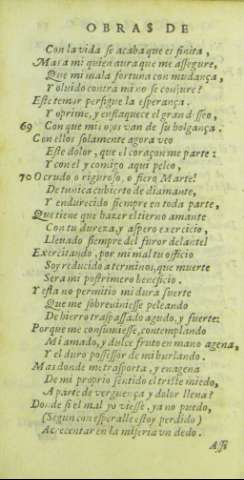 OBRAS DE
Con la vida se acaba que es finita,
Mas a mi quien aura que me assegure,
Que mi mala fortuna con mudança,
Y oluido contra mi no se conjure?
Este temor persigue la esperança.
Y oprime, y enflaquece el gran desseo,
69 Con que mis ojos van de su holgança.
Con ellos solamente agora veo
Este dolor, que el coraçon me parte:
Y con el y comigo aqui peleo,
70 O crudo o riguroso, o fiero Marte!
De tunica cubierto de diamante,
Y endurecido siempre en toda parte,
Que tiene que hazer el tierno amante
Con tu dureza, y aspero exercicio,
Lleuado siempre del furor delante!
Exercitando, por mi mal tu officio
Soy reducido a terminos, que muerte
Sera mi postrimero beneficio.
Y esta no permitio mi dura suerte
Que me sobreuiniesse peleando
De hierro traspassado agudo, y fuerte:
Porque me consumiesse, contemplando
Mi amado, y dulce fruto en mano agena,
Y el duro possessor de mi burlando.
Mas donde me trasporta, y enagena
De mi proprio sentido el triste miedo,
A parte de verguença y dolor llena?
Donde si el mal yo viesse, ya no puedo,
(Segun con esperalle estoy perdido)
Acrecentar en la miseria vn dedo.
Assi